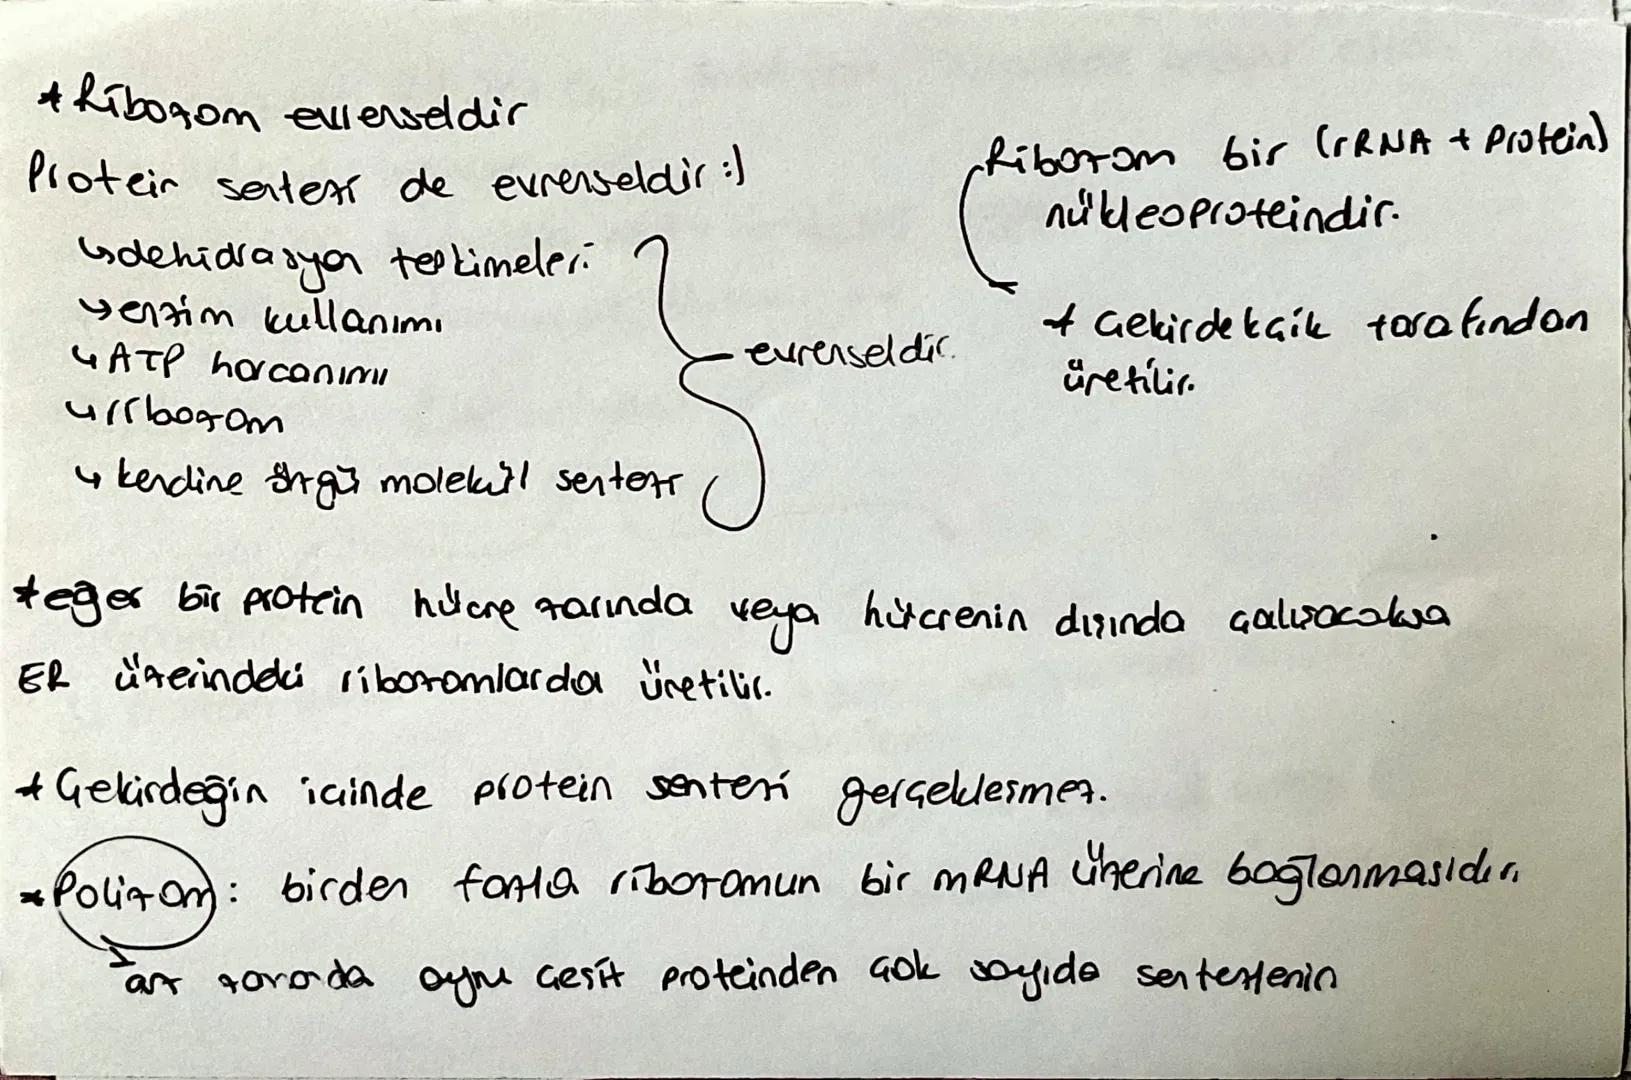 * Ribozom evrenseldir
Protein sentezi de evrenseldir :)
↳ dehidrasyon tepkimeleri
↳ enzim kullanımı
↳ ATP harcanımı
↳ ribozom
↳ kendine özgü molekül sentezi
evrenseldir.
Ribozom bir (rRNA + Protein)
nükleoproteindir.
* Çekirdekçik tarafından
üretilir.
* eğer bir protein hücre zarında veya hücrenin dışında çalışacaksa
ER üzerindeki ribozomlarda üretilir.
* Çekirdeğin içinde protein sentezi gerçekleşmez.
* Polizom: birden fazla ribozomun bir mRNA üzerine bağlanmasıdır.
az zamanda aynı çeşit proteinden çok sayıda sentezlenir